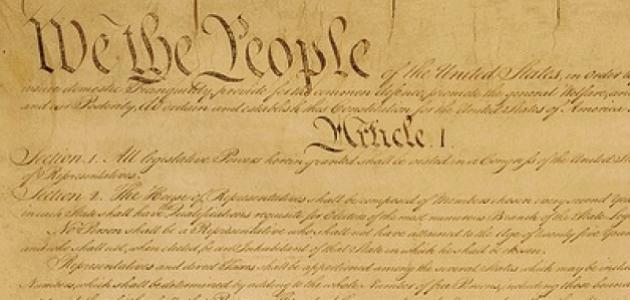 We the People of the United States, in Order to
insure domestic Tranquility, provide for the common defence, promote the general Welfare, and
and our Posterity, do ordain and establish this Constitution for the United States of America
Article. I.
Section. 1. All legislative Powers herein granted shall be vested in a Congress of the United
of Representatives.
Section. 2. The House of Representatives shall be composed of Members chosen every second
in each State shall have Qualifications requisite for Electors of the most numerous Branch of the State
No Person shall be a Representative who shall not have attained to the Age of twenty five
and who shall not, when elected, be an Inhabitant of that State in which he shall be chosen.
Representatives and direct Taxes shall be apportioned among the several States which may be
Numbers, which shall be determined by adding to the whole Number of free Persons, including those bound